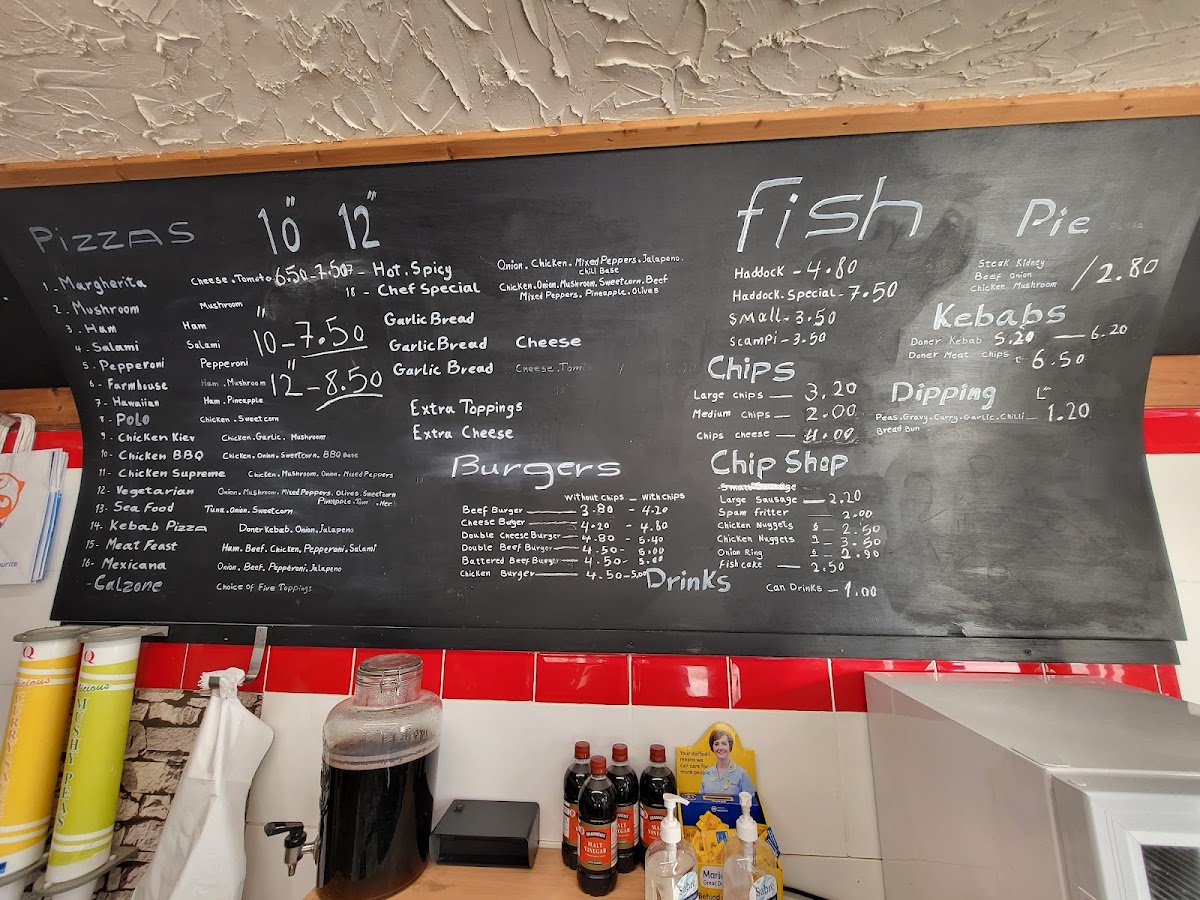 Pizzas 10" 12"
1 - Margherita Cheese.Tomato 6.50 - 7.50
2 - Mushroom Mushroom
3 - Ham Ham
4 - Salami Salami
5 - Pepperoni Pepperoni
6 - Farmhouse Ham.Mushroom
7 - Hawaiian Ham.Pineapple
8 - POLO Chicken.Sweetcorn
9 - Chicken Kiev Chicken.Garlic.Mushroom
10 - Chicken BBQ Chicken.Onion.Sweetcorn.BBQ Base
11 - Chicken Supreme Chicken.Mushroom.Onion.Mixed Peppers
12 - Vegetarian Onion.Mushroom.Mixed Peppers.Olives.Sweetcorn
Pineapple.Tom
13 - Sea Food Tuna.Onion.Sweetcorn
14 - Kebab Pizza Doner Kebab.Onion.Jalapeno
15 - Meat Feast Ham.Beef.Chicken.Pepperoni.Salami
16 - Mexicana Onion.Beef.Pepperoni.Jalapeno
- Calzone Choice of Five Toppings
10" - 7.50
12" - 8.50
- Hot.Spicy Onion.Chicken.Mixed Peppers.Jalapeno.
Chili Base
18 - Chef Special Chicken.Onion.Mushroom.Sweetcorn.Beef
Mixed Peppers.Pineapple.Olives
Garlic Bread
Garlic Bread Cheese
Garlic Bread Cheese.Tom
Extra Toppings
Extra Cheese
Burgers
Without chips - With chips
Beef Burger 3.80 - 4.20
Cheese Buger 4.20 - 4.60
Double Cheese Burger 4.80 - 5.40
Double Beef Burger 4.50 - 5.00
Battered Beef Burger 4.50 - 5.00
Chicken Burger 4.50 - 5.00
fish
Haddock - 4.80
Haddock.Special - 7.50
Small - 3.50
Scampi - 3.50
Chips
Large chips - 3.20
Medium chips - 2.00
Chips cheese - 4.00
Chip Shop
Large Sausage - 2.20
Spam fritter - 2.00
Chicken Nuggets - 2.50
Chicken Nuggets - 3.50
Onion Ring - 2.90
Fishcake - 2.50
Drinks
Can Drinks - 1.00
Pie
Steak Kidney
Beef Onion
Chicken Mushroom / 2.80
Kebabs
Doner Kebab 5.20 - 6.20
Doner Meat chips 6.50
Dipping
Peas.Gravy.Curry.Garlic.Chilli - 1.20
Bread Bun
MUSHY PEAS
MALT
VINEGAR
Your daffodil
means we
can care for
more people
Marie
Great Da
Behind
Sabre
Sabre